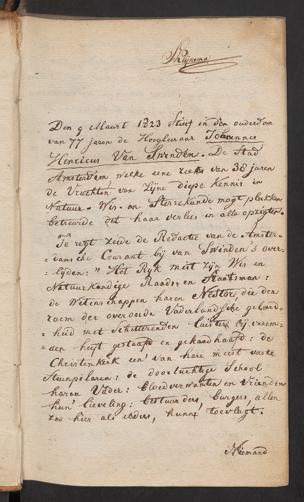 Den 9 Maart 1823 stierf in den ouderdom
van 77 jaren de Hoogleraar Johannes
Henricus Van Swinden. De Stad
Amsterdam welke eene reeks van 38 jaren
de Vruchten van zijne diepe kennis in
Natuur- Wis- en Sterrekunde mogt plukken
betreurde dit haar verlies in alle opzigten.
Te regt zeide de Redactie van de Amster-
damsche Courant bij van Swinden's over-
lijden: "Het Ryk mist zijn Wis en
Natuurkundige Raads en Staatsman:
de Wetenschappen haren Nestor, die den
roem der overoude Vaderlandsche geleerd-
heid met schitterenden luister bij vreem-
den heeft gestaafd en gehandhaafd: de
Christenkerk een van hare meest vaste
Steunpilaren: de doorluchtige School
haren Vader: bloedverwanten en Vrienden
hun lieveling: bestuurders, burgers, allen
zoo hier als elders, hunne toevlugt.
Niemand